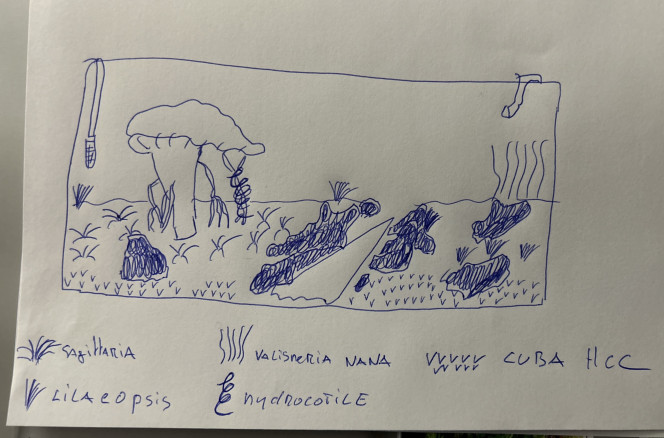 SAgittaria VALISNERIA NANA CUBA HCC
LILAEOPSIS hydROCOTILE